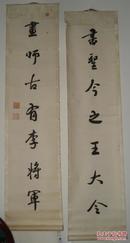 書聖今之王大令
畫師古有李將軍